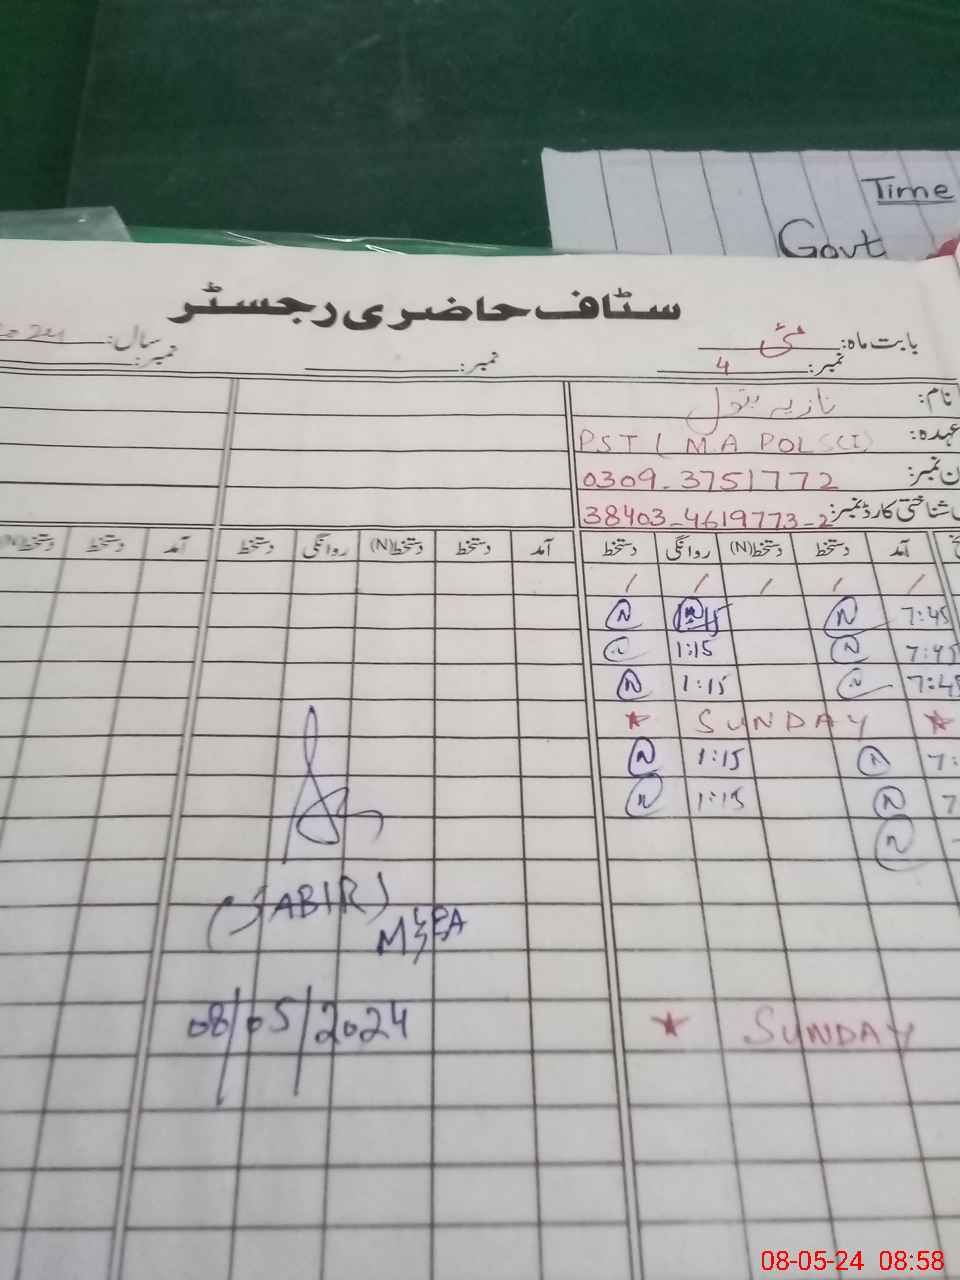 Time
Govt
سٹاف حاضری رجسٹر
بابت ماہ: مئی
سال:
نمبر: 4
نمبر:
نمبر:
نام: نازیہ بتول
عہدہ: PST ( M.A POL SCI)
ن نمبر: 0309-3751772
شناختی کارڈ نمبر: 38403-4619773-2
آمد دستخط دستخط(N) روانگی دستخط آمد دستخط دستخط(N) روانگی دستخط آمد دستخط دستخط(N)
/ / / / /
7:45 N N
7:45 N 1:15 N
7:45 N 1:15 N
★ SUNDAY ★
7: N 1:15 N
7 N 1:15 N
N
(SABIR)
M&EA
08/05/2024
★ SUNDAY
08-05-24 08:58